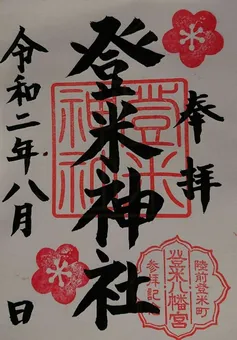 奉拝
登米神社
令和二年八月 日
登米
神社
陸前登米町
登米八幡宮
参拝記